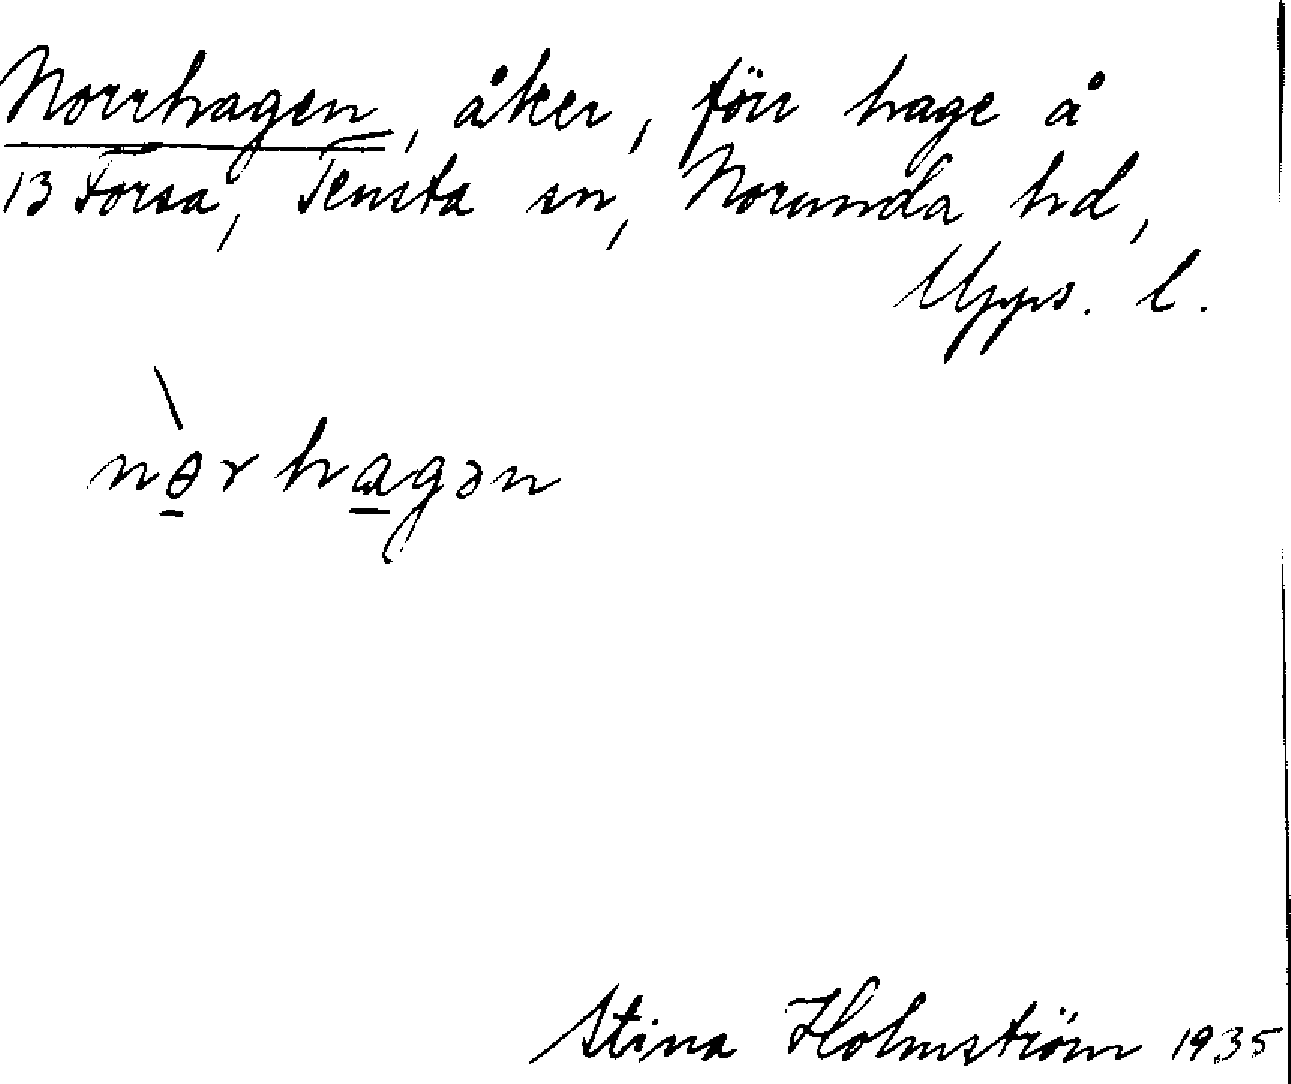 Norrhagen, åker, förr hage å
13 Forsa, Tensta sn, Norunda hd,
Upps. l.
nθ̠̀rha̠gən
Stina Holmström 1935